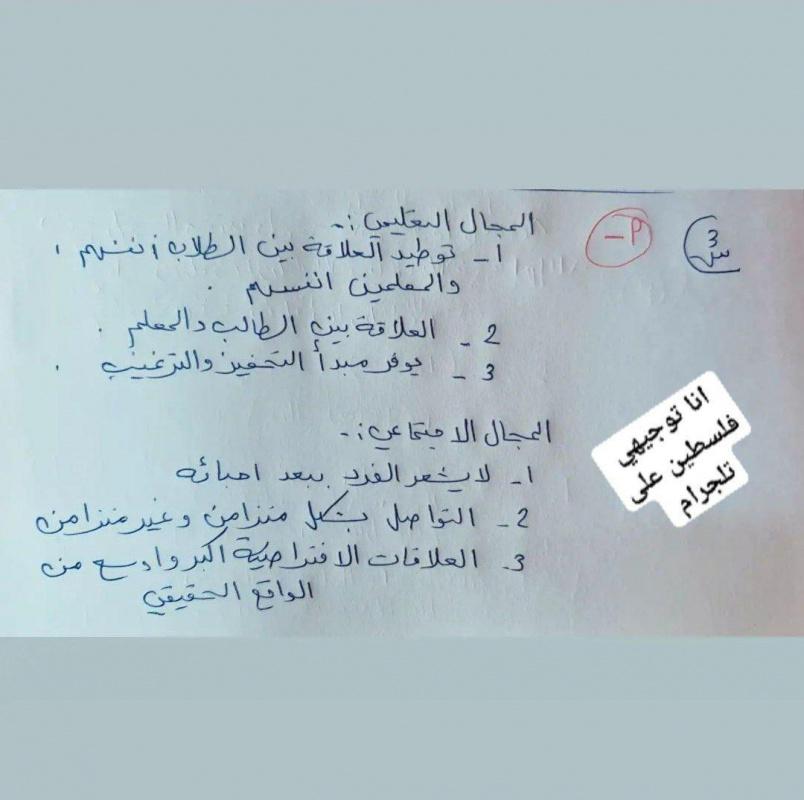 س3
أ-
المجال التعليمي :-
1- توطيد العلاقة بين الطلاب أنفسهم ،
والمعلمين أنفسهم .
2- العلاقة بين الطالب والمعلم .
3- يوفر مبدأ التحفيز والترغيب .
المجال الاجتماعي :-
1- لا يشعر الفرد ببعد احبائه
2- التواصل بشكل متزامن وغير متزامن
3. العلاقات الافتراضية اكبر واوسع من
الواقع الحقيقي
انا توجيهي
فلسطين على
تلجرام